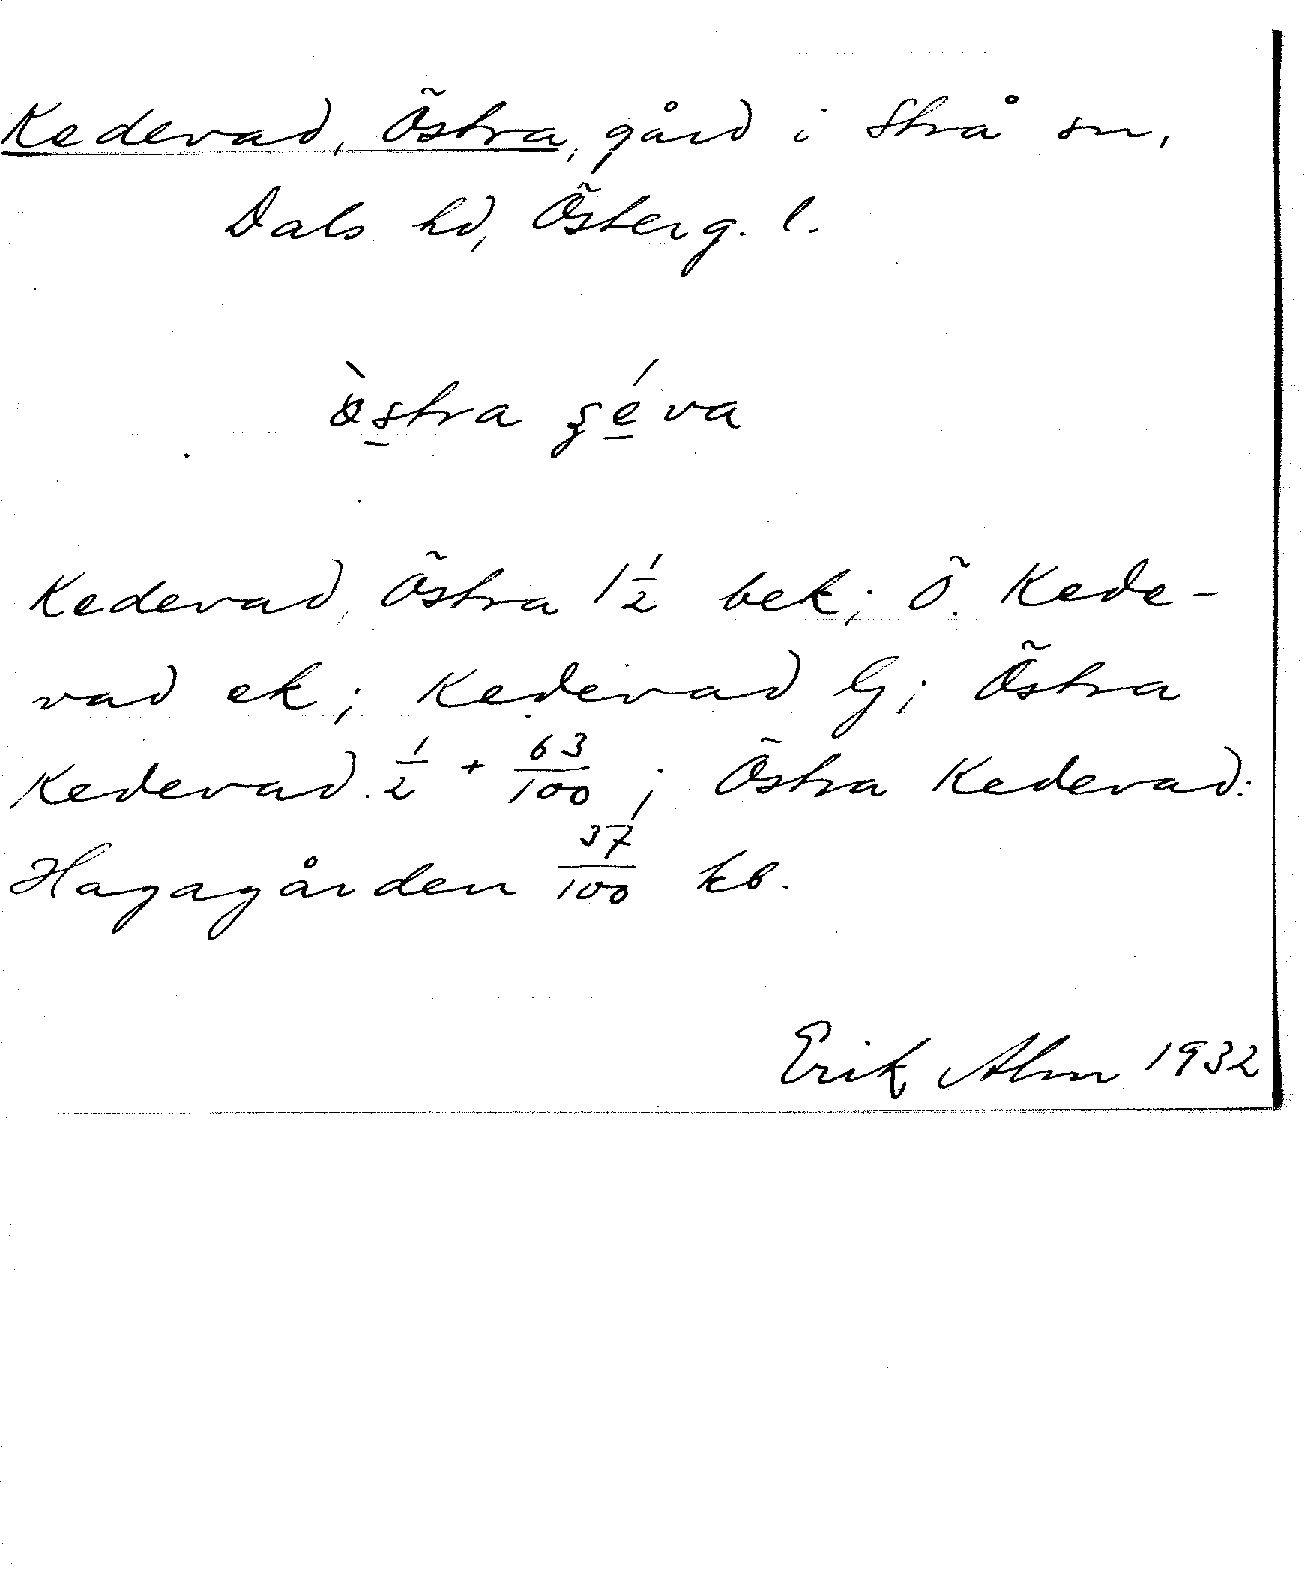 Kedevad, Östra, gård i Strå sn,
Dals hd, Österg. l.
östra ʂéva
Kedevad, Östra 1 1/2 bek; Ö. Kede-
vad ek; Kedevad G; Östra
Kedevad 1/2 + 63/100; Östra Kedevad:
Hagagården 37/100 kb.
Erik Alm 1932